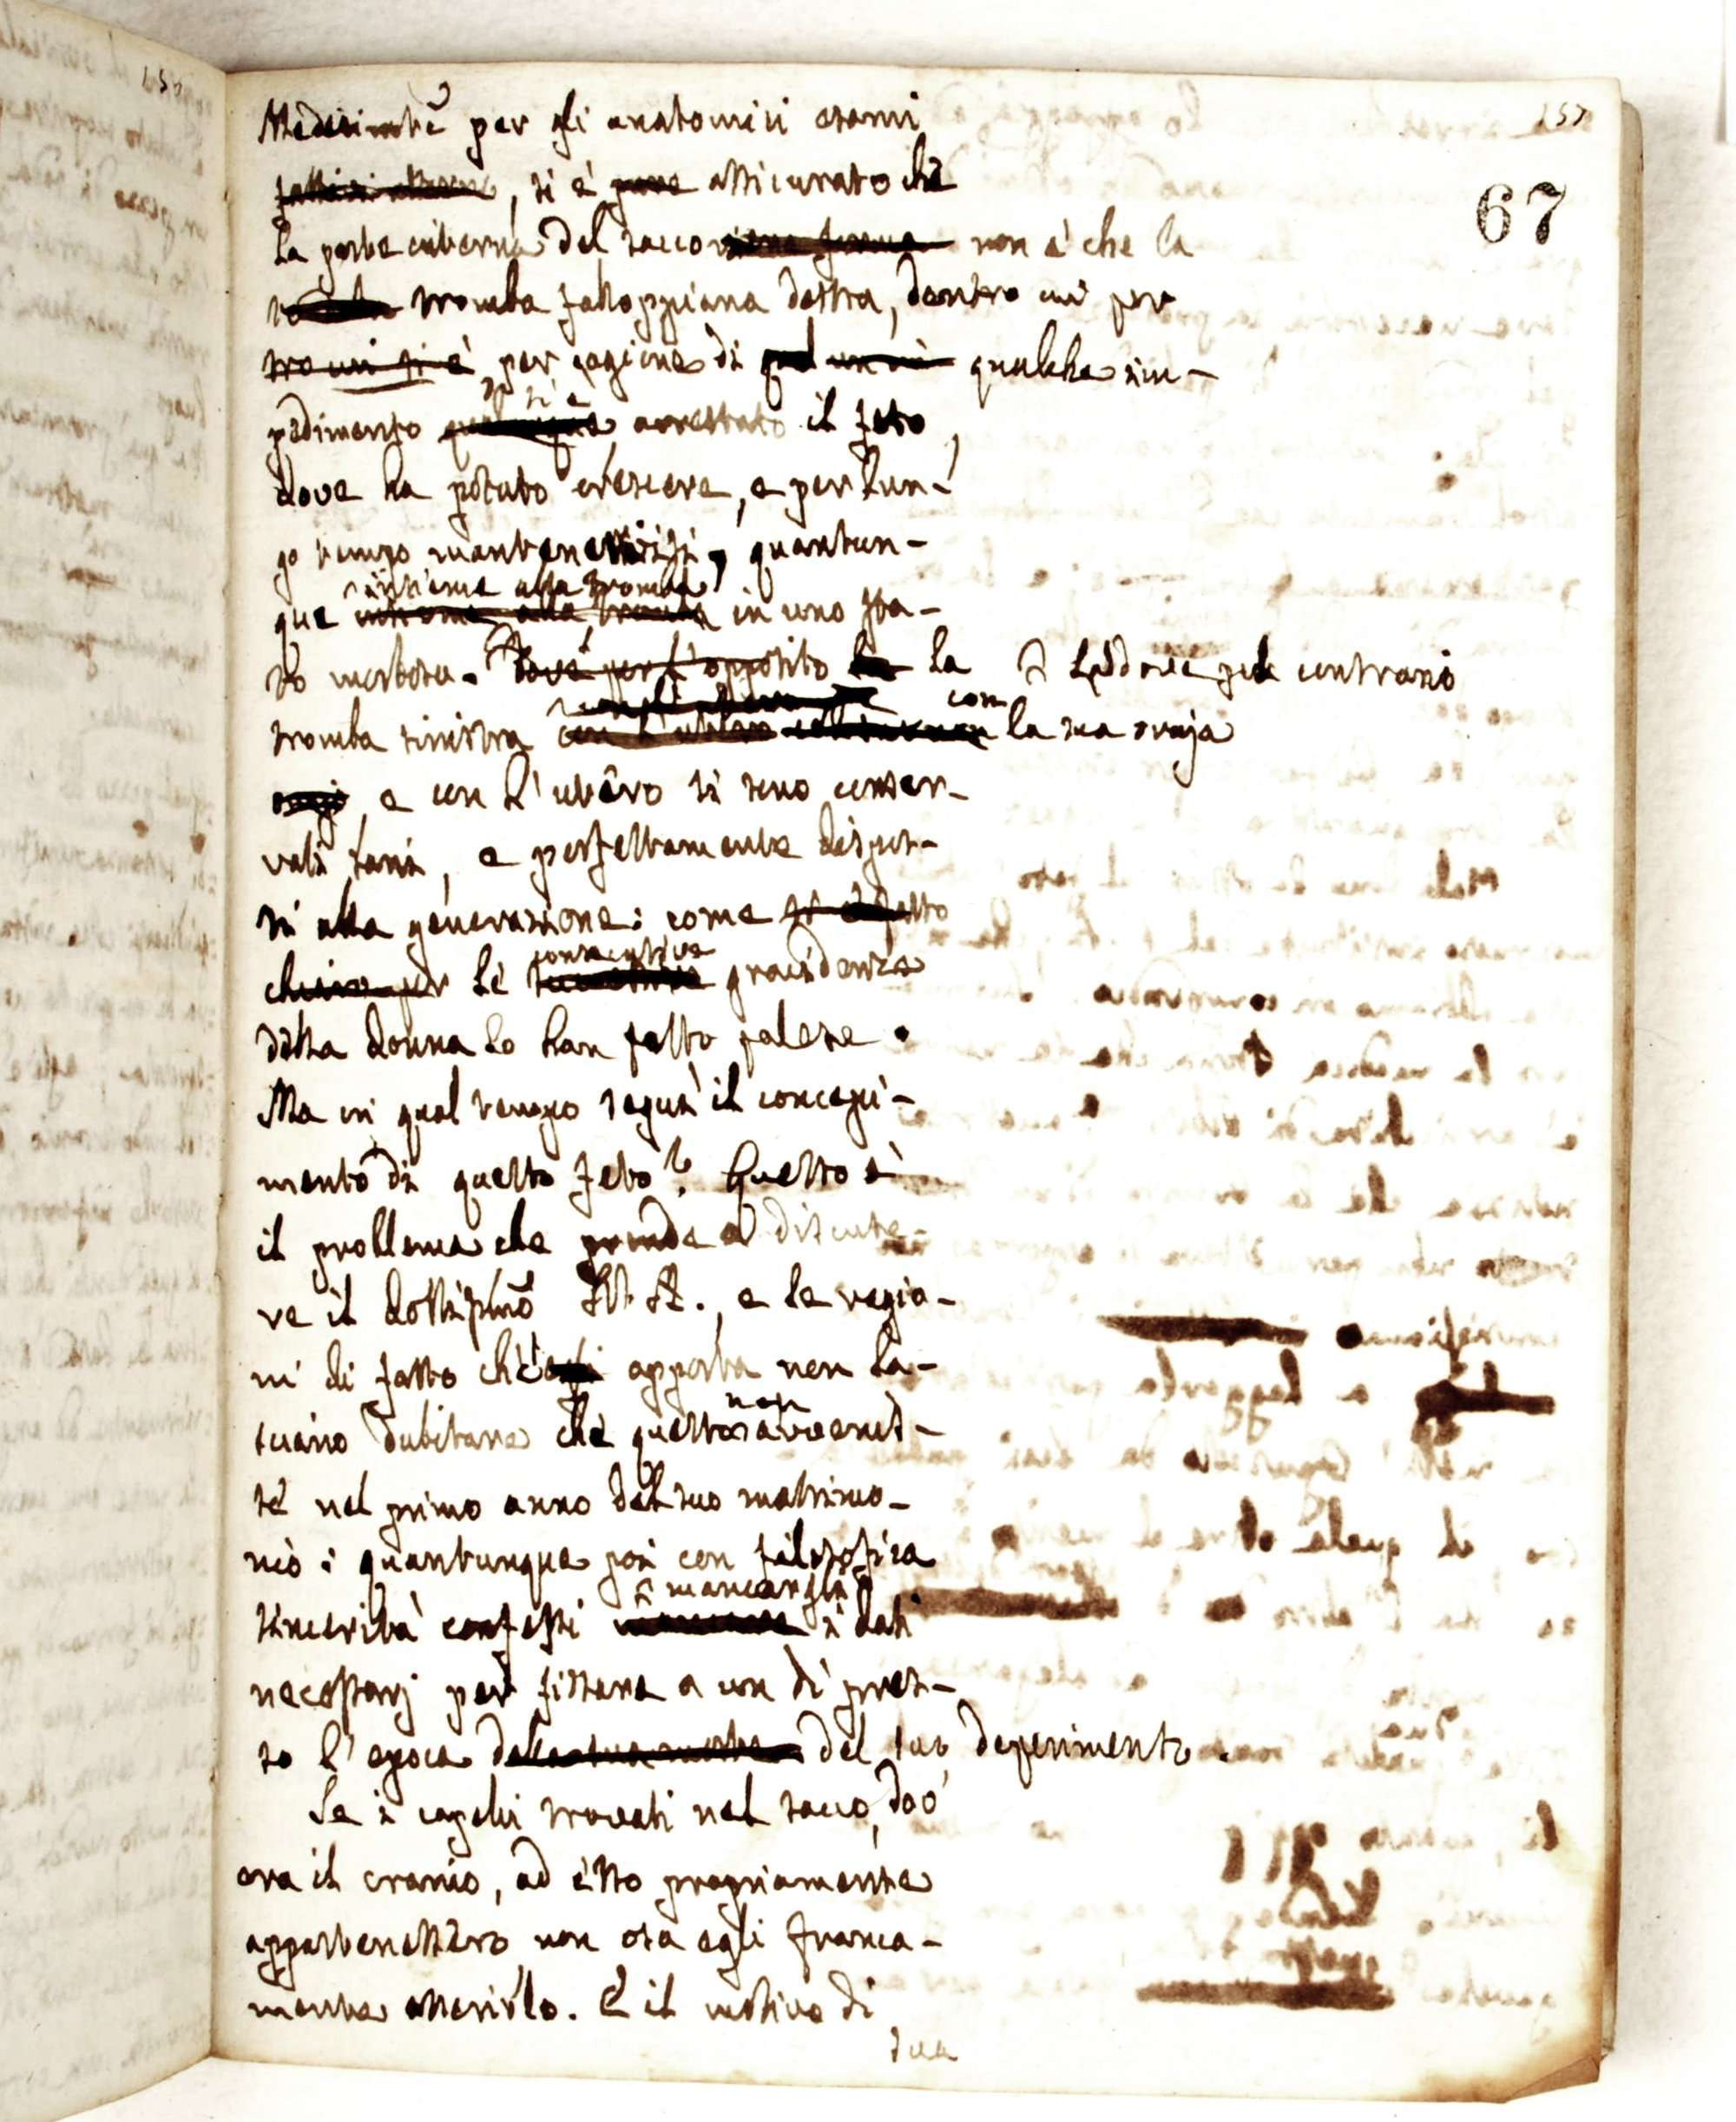 157
67
Medesim̃te per gli anatomici esami
, si è pure assicurato che
la parte esterna del sacco non è che la
tromba falloppiana destra, dentro cui per
tro cui si è per cagione di qualche im-
pedimento si è arrestato il feto,
dove ha potuto crescere, e per lun-
go tempo mantenersi, quantun-
insieme alla tromba
que insieme alla tromba in uno sta-
to morboso. Dove per l'opposito la Laddove pel contrario
con
tromba sinistra con l'utero la sua ovaja
e con l'utero si sono conser-
vati sani, e perfettamente dispos-
ti alla generazione: come si è fatto
consecutive
chiaro per le gravidenze
della donna lo han fatto palese.
Ma in qual tempo seguì il concepi-
mento di questo feto? Questo è
il problema che prende a discute-
re il dottissimo Sig. A., e le ragio-
ni di fatto ch'egli apporta non la-
non
sciano dubitare che questo avvenis-
se nel primo anno del suo matrimo-
nio: quantunque poi con filosofica
mancargli
sincerità confessi i dati
necessarj per fissare a un di pres-
so l'epoca della sua morte del suo deperimento.
Se i capelli trovati nel sacco, do-
era il cranio, ad esso propriamente
appartenessero non osa egli franca-
mente asserirlo. E il motivo di
sua